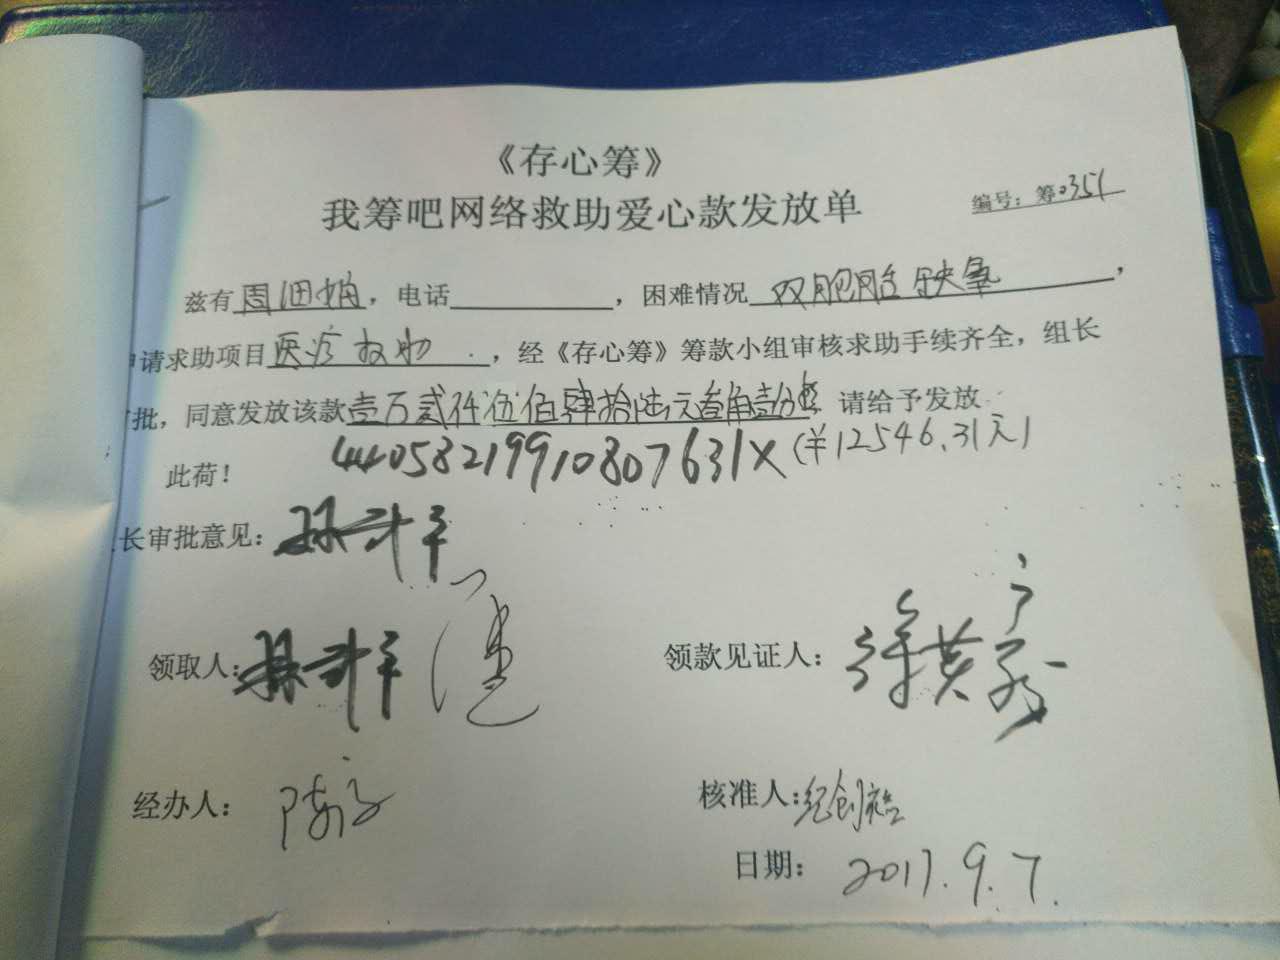 《存心筹》
我筹吧网络救助爱心款发放单
编号：筹0351
兹有周细娟，电话，困难情况双胞胎缺氧，
申请求助项目医疗救助，经《存心筹》筹款小组审核求助手续齐全，组长
批，同意发放该款壹万贰仟伍佰肆拾陆元叁角壹分整 请给予发放
44058219910807631X（￥12546.31元）
此荷！
长审批意见：
领取人： 领款见证人：
经办人： 核准人：纪创
日期：2017.9.7